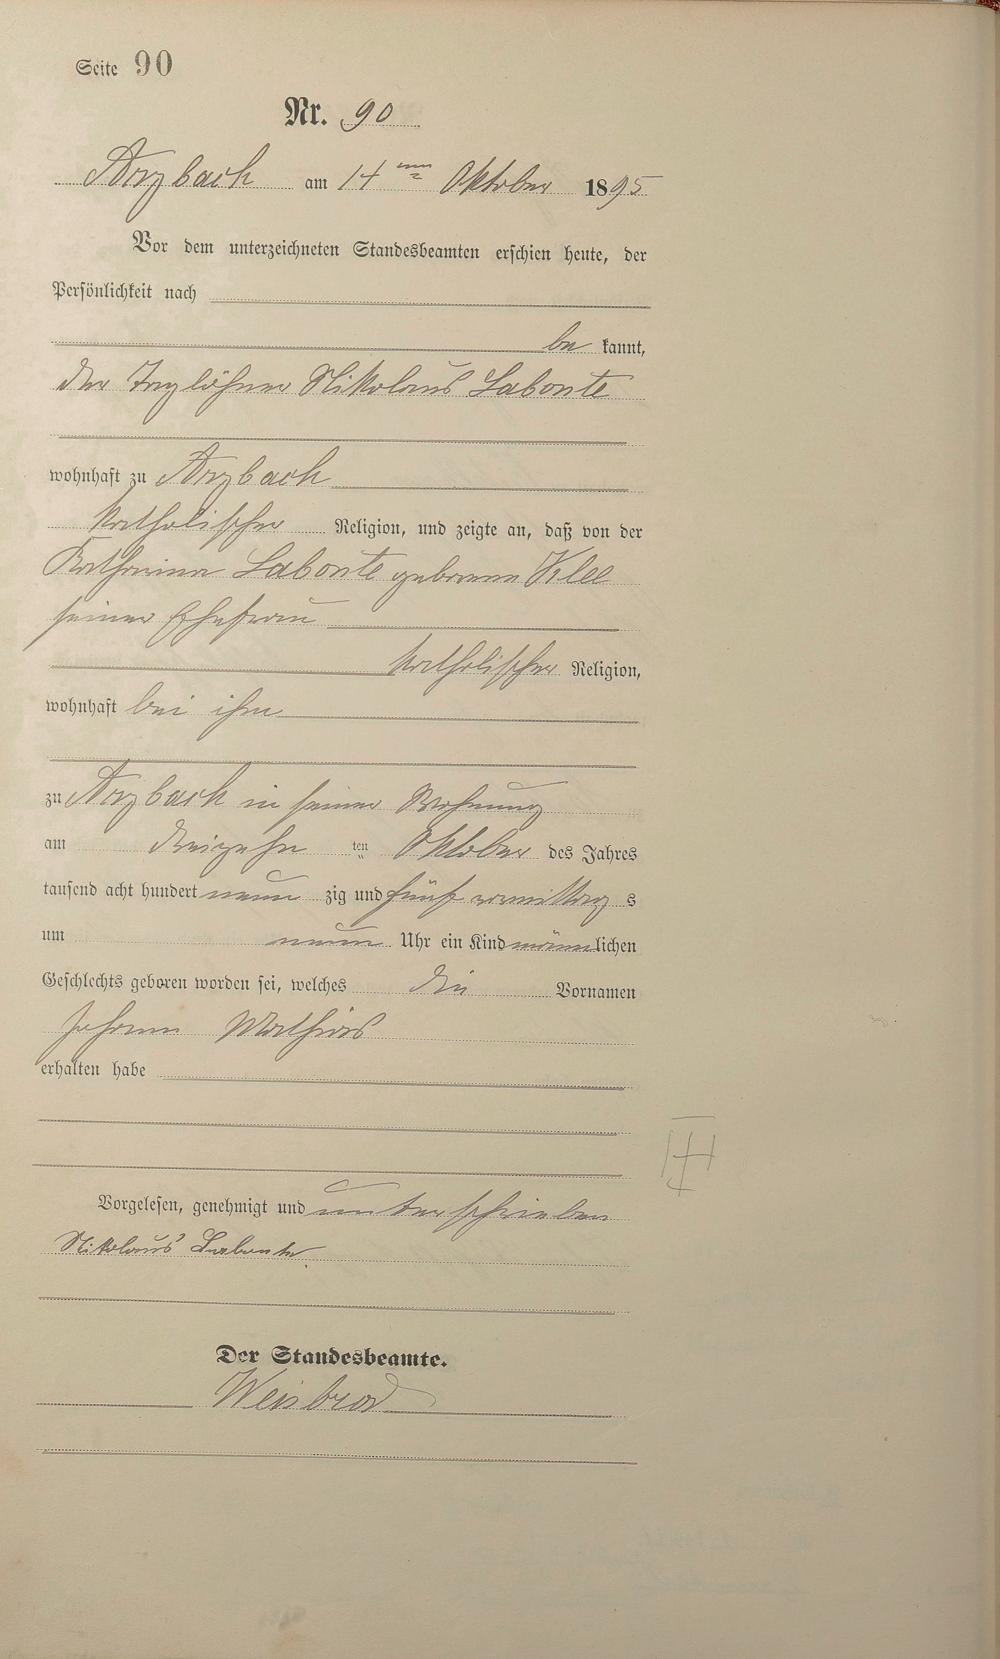 Seite 90
Nr. 90
Arzbach am 14ten Oktober 1895
Vor dem unterzeichneten Standesbeamten erschien heute, der
Persönlichkeit nach
be kannt,
der Taglöhner Nikolaus Labonte
wohnhaft zu Arzbach
katholischer Religion, und zeigte an, daß von der
Katharina Labonte geborene Klee
seiner Ehefrau
katholischer Religion,
wohnhaft bei ihm
zu Arzbach in seiner Wohnung
am dreizehn ten Oktober des Jahres
tausend acht hundert neun zig und fünf vormittag s
um neun Uhr ein Kind männlichen
Geschlechts geboren worden sei, welches die Vornamen
Johann Mathias
erhalten habe
Vorgelesen, genehmigt und unterschrieben
Nikolaus Labonte
Der Standesbeamte.
Weisbrod